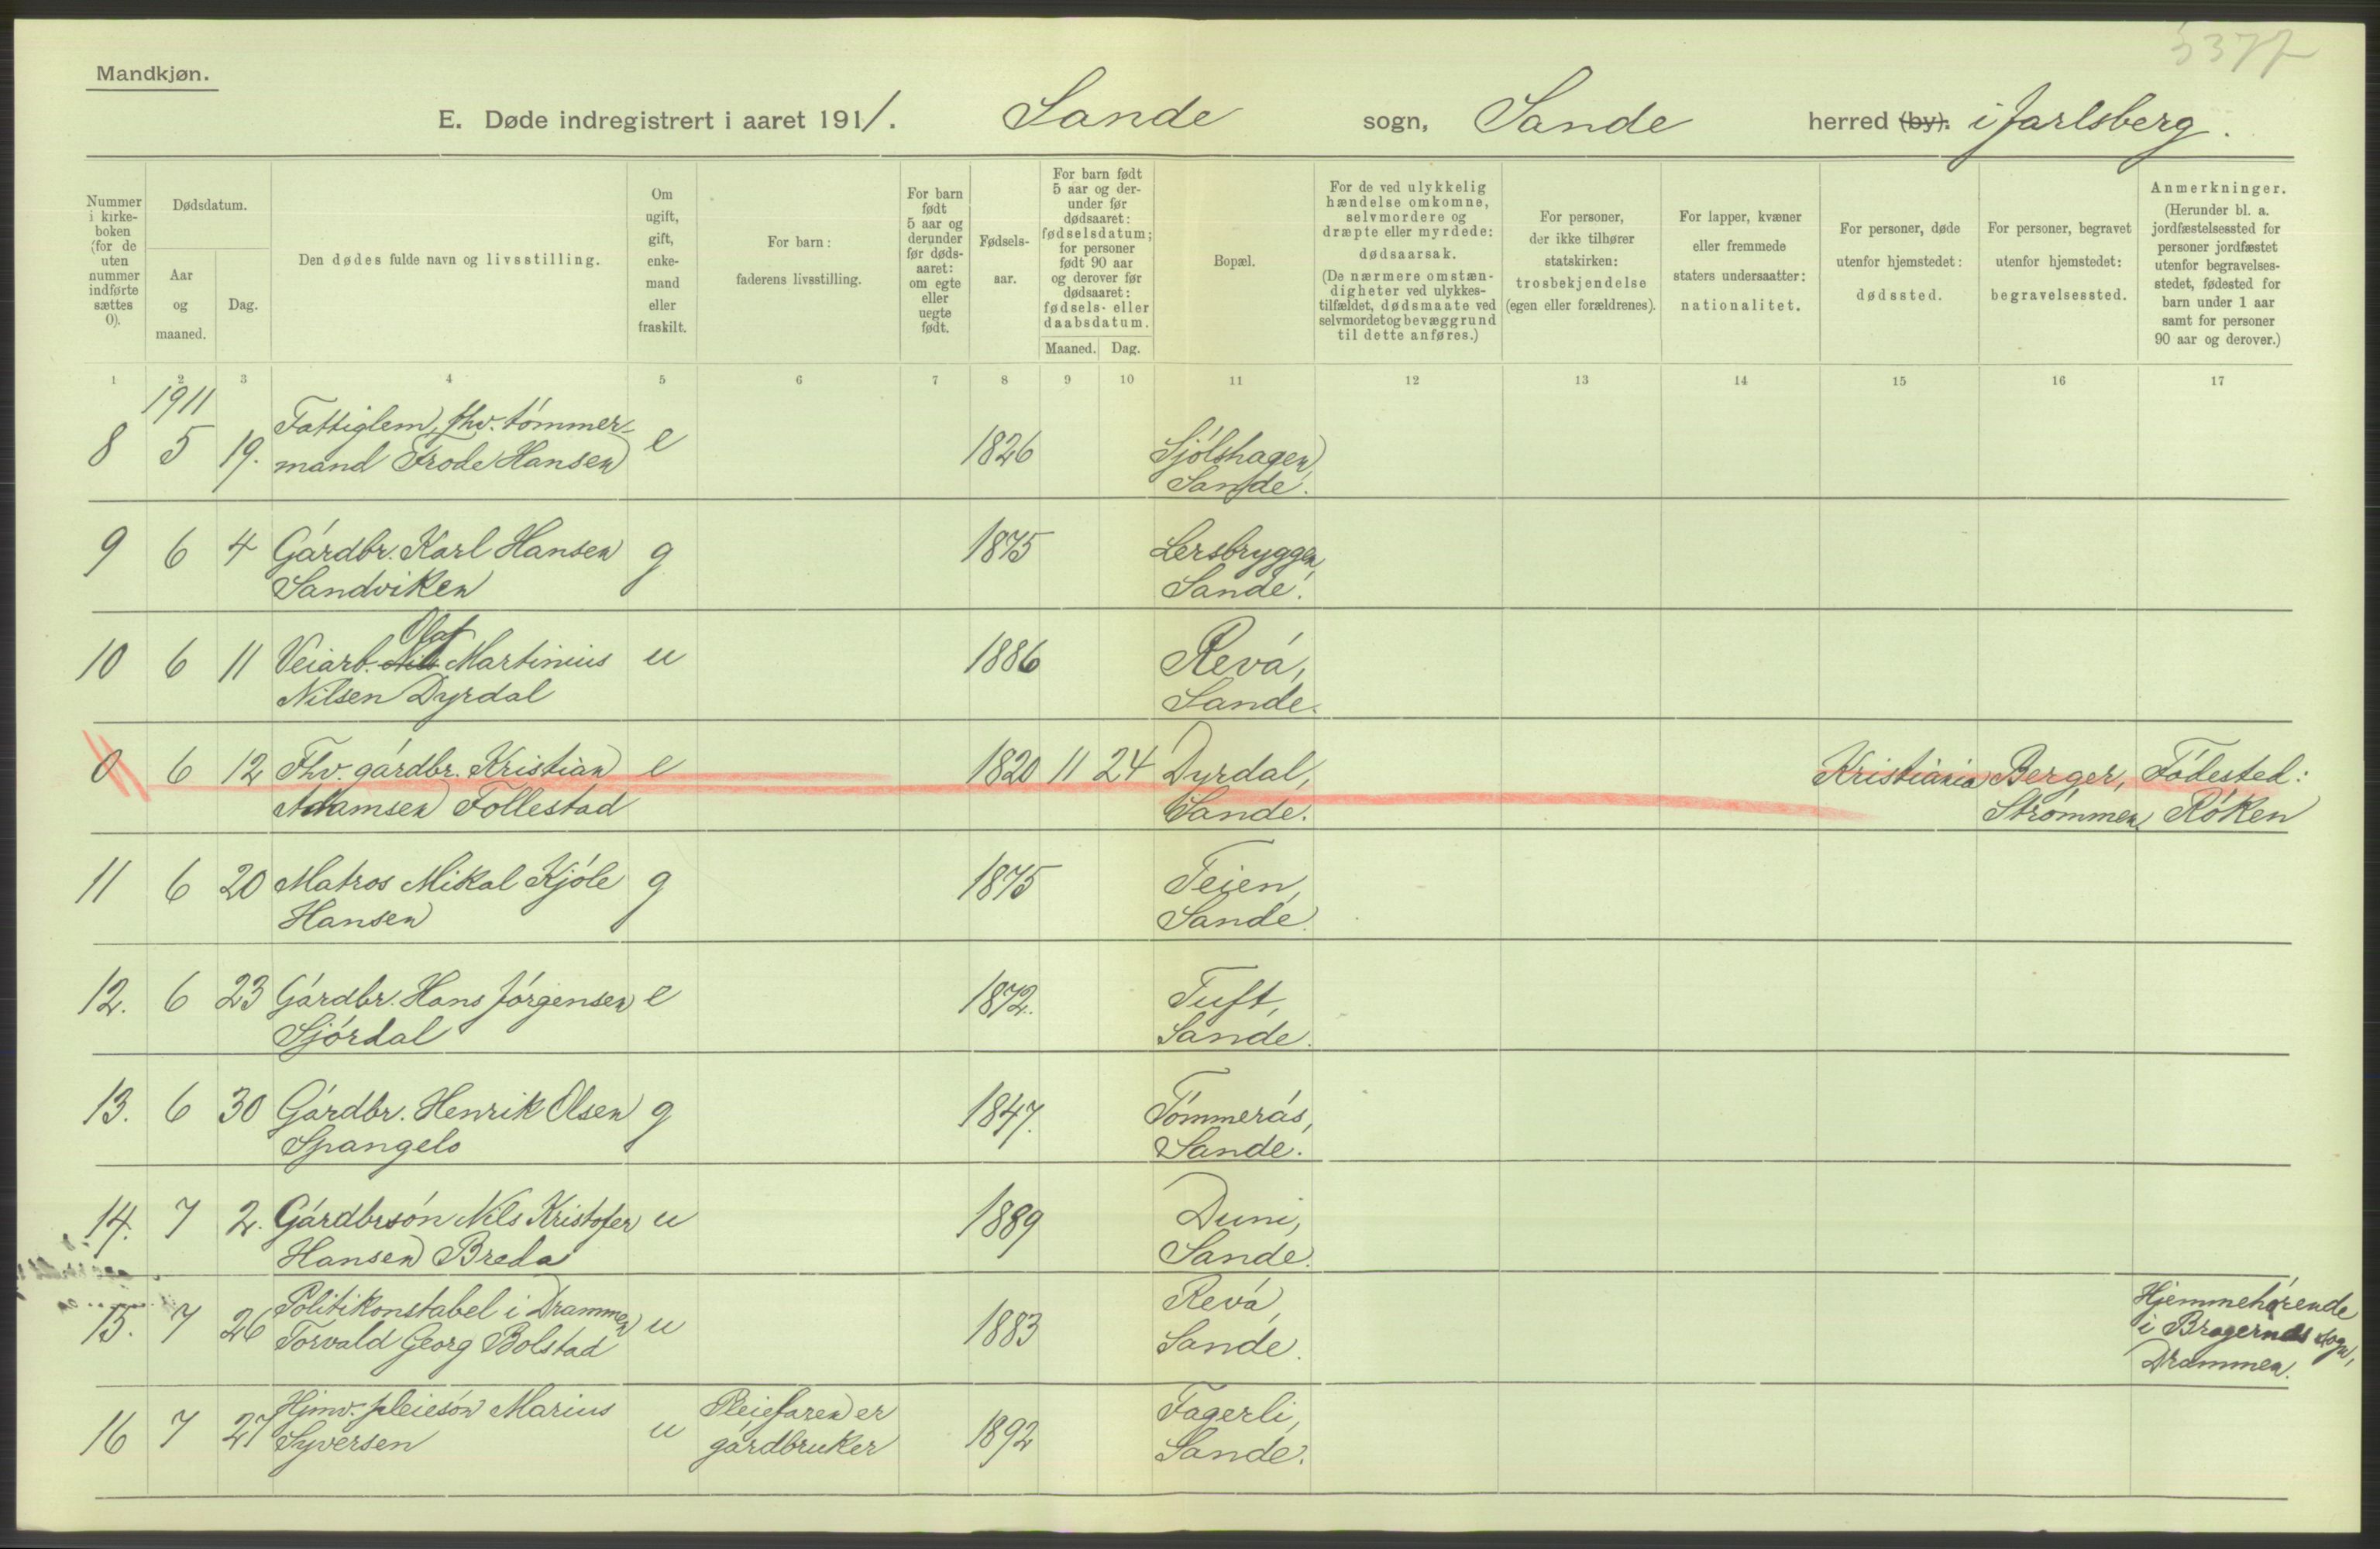 5377
Mandkjøn.
E. Døde indregistrert i aaret 1911. Sande sogn, Sande herred (by). i Jarlsberg.
Nummer i kirkeboken (for de uten nummer indførte sættes 0).
Dødsdatum.
Aar og maaned.
Dag.
Den dødes fulde navn og livsstilling.
Om ugift, gift, enkemand eller fraskilt.
For barn: faderens livsstilling.
For barn født 5 aar og derunder før dødsaaret: om egte eller uegte født.
Fødselsaar.
For barn født 5 aar og derunder før dødsaaret: fødselsdatum; for personer født 90 aar og derover før dødsaaret: fødsels- eller daabsdatum.
Maaned. Dag.
Bopæl.
For de ved ulykkelig hændelse omkomne, selvmordere og dræpte eller myrdede: dødsaarsak. (De nærmere omstændigheter ved ulykkestilfældet, dødsmaate ved selvmordet og bevæggrund til dette anføres.)
For personer, der ikke tilhører statskirken: trosbekjendelse (egen eller forældrenes).
For lapper, kvæner eller fremmede staters undersaatter: nationalitet.
For personer, døde utenfor hjemstedet: dødssted.
For personer, begravet utenfor hjemstedet: begravelsessted.
Anmerkninger. (Herunder bl. a. jordfæstelsessted for personer jordfæstet utenfor begravelsesstedet, fødested for barn under 1 aar samt for personer 90 aar og derover.)
1 2 3 4 5 6 7 8 9 10 11 12 13 14 15 16 17
1911
8 5 19. Fattiglem, fhv. tömmer- e 1826 Sjölshagen,
mand Frode Hansen Sande.
9 6 4 Gárdbr. Karl Hansen g 1875 Lersbryggen,
Sandviken Sande.
Olaf
10 6 11 Veiarb. Nils Martinius u 1886 Revá,
Nilsen Dyrdal Sande.
0 6 12 Fhv. gárdbr. Kristian e 1820 11 24 Dyrdal, Kristiania Berger, Födested:
Adamsen Follestad Sande. Strømmen, Röken
11 6 20 Matros Mikal Kjöle g 1875 Teien,
Hansen Sande.
12. 6 23 Gárdbr. Hans Jörgensen e 1872. Tuft,
Sjördal Sande.
13. 6 30 Gárdbr. Henrik Olsen g 1847. Tömmerás,
Spangelo Sande.
14. 7 2. Gárdbrsön Nils Kristofer u 1889 Duni,
Hansen Breda Sande.
15. 7 26 Politikonstabel i Drammen u 1883 Revá, Hjemmehörende
Torvald Georg Bolstad Sande. i Bragernes sogn,
Drammen.
16 7 27 Hjmv. pleiesön Marius u Pleiefaren er 1892 Fagerli,
Syversen gárdbruker Sande.